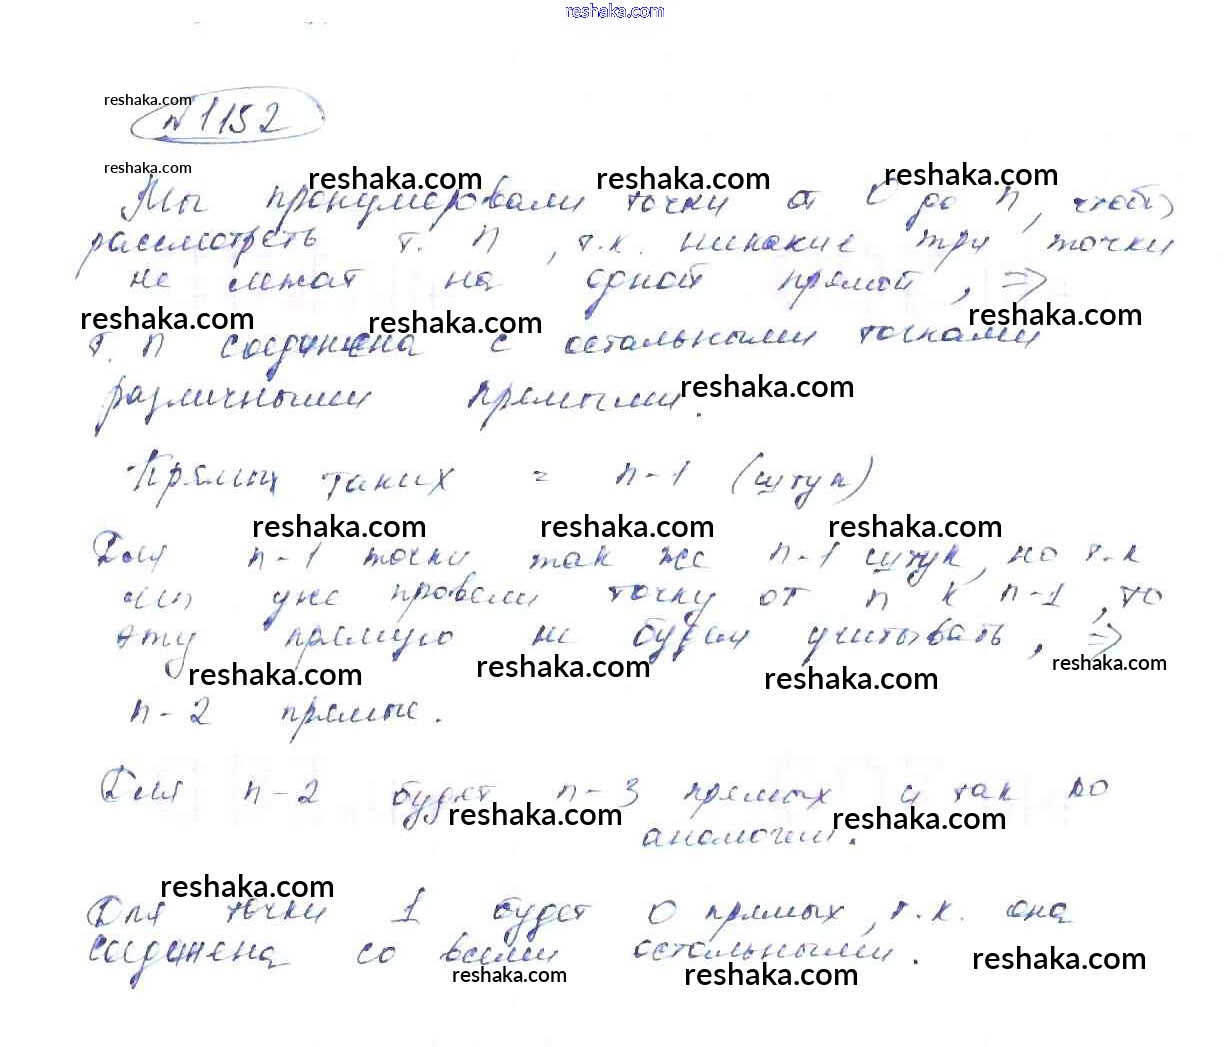 reshaka.com
reshaka.com
№1152
reshaka.com
reshaka.com reshaka.com reshaka.com
Мы пронумеровали точки от до n, чтобы
рассмотреть т. n, т.к. никакие три точки
не лежат на одной прямой, =>
reshaka.com reshaka.com reshaka.com
т. n соединена с остальными точками
reshaka.com
различными прямыми.
Прямых таких = n-1 (штук)
reshaka.com reshaka.com reshaka.com
Для n-1 точки так же n-1 штук, но т.к
мы уже провели точку от n к n-1, то
эту прямую не будем учитывать, =>
reshaka.com reshaka.com reshaka.com reshaka.com
n-2 прямые.
Для n-2 будет n-3 прямых и так по
reshaka.com reshaka.com
аналогии.
reshaka.com
Для точки 1 будет 0 прямых, т.к. она
соединена со всеми остальными.
reshaka.com reshaka.com reshaka.com